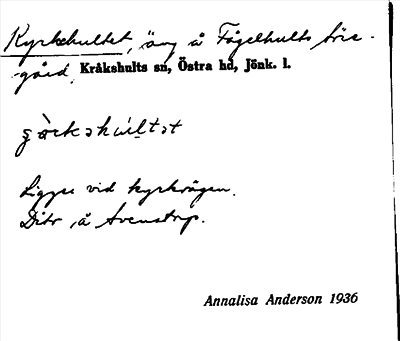 Kyrkehultet, äng å Fågelhults säte-
gård, Kråkshults sn, Östra hd, Jönk. l.
Ligger vid kyrkvägen.
Dito, å Svenstorp.
Annalisa Anderson 1936